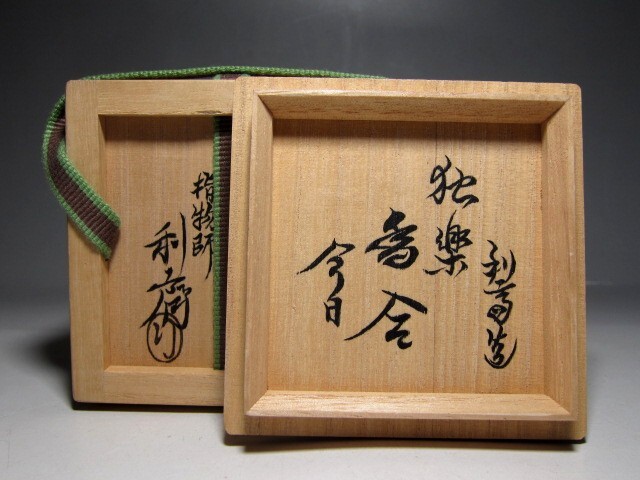 利斎造
独楽
香合
今日
指物師
利斎